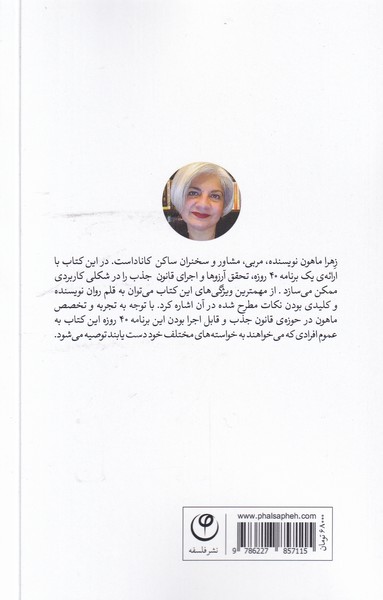 زهرا ماهون نویسنده، مربی، مشاور و سخنران ساکن کاناداست. در این کتاب با
ارائه‌ی یک برنامه ۴۰ روزه، تحقق آرزوها و اجرای قانون جذب را در شکلی کاربردی
ممکن می‌سازد . از مهمترین ویژگی‌های این کتاب می‌توان به قلم روان نویسنده
و کلیدی بودن نکات مطرح شده در آن اشاره کرد. با توجه به تجربه و تخصص
ماهون در حوزه‌ی قانون جذب و قابل اجرا بودن این برنامه ۴۰ روزه این کتاب به
عموم افرادی که می‌خواهند به خواسته‌های مختلف خود دست یابند توصیه می‌شود.
www.phalsapheh.com
۶۸۰۰۰ تومان
نشر فلسفه
9 786227 857115